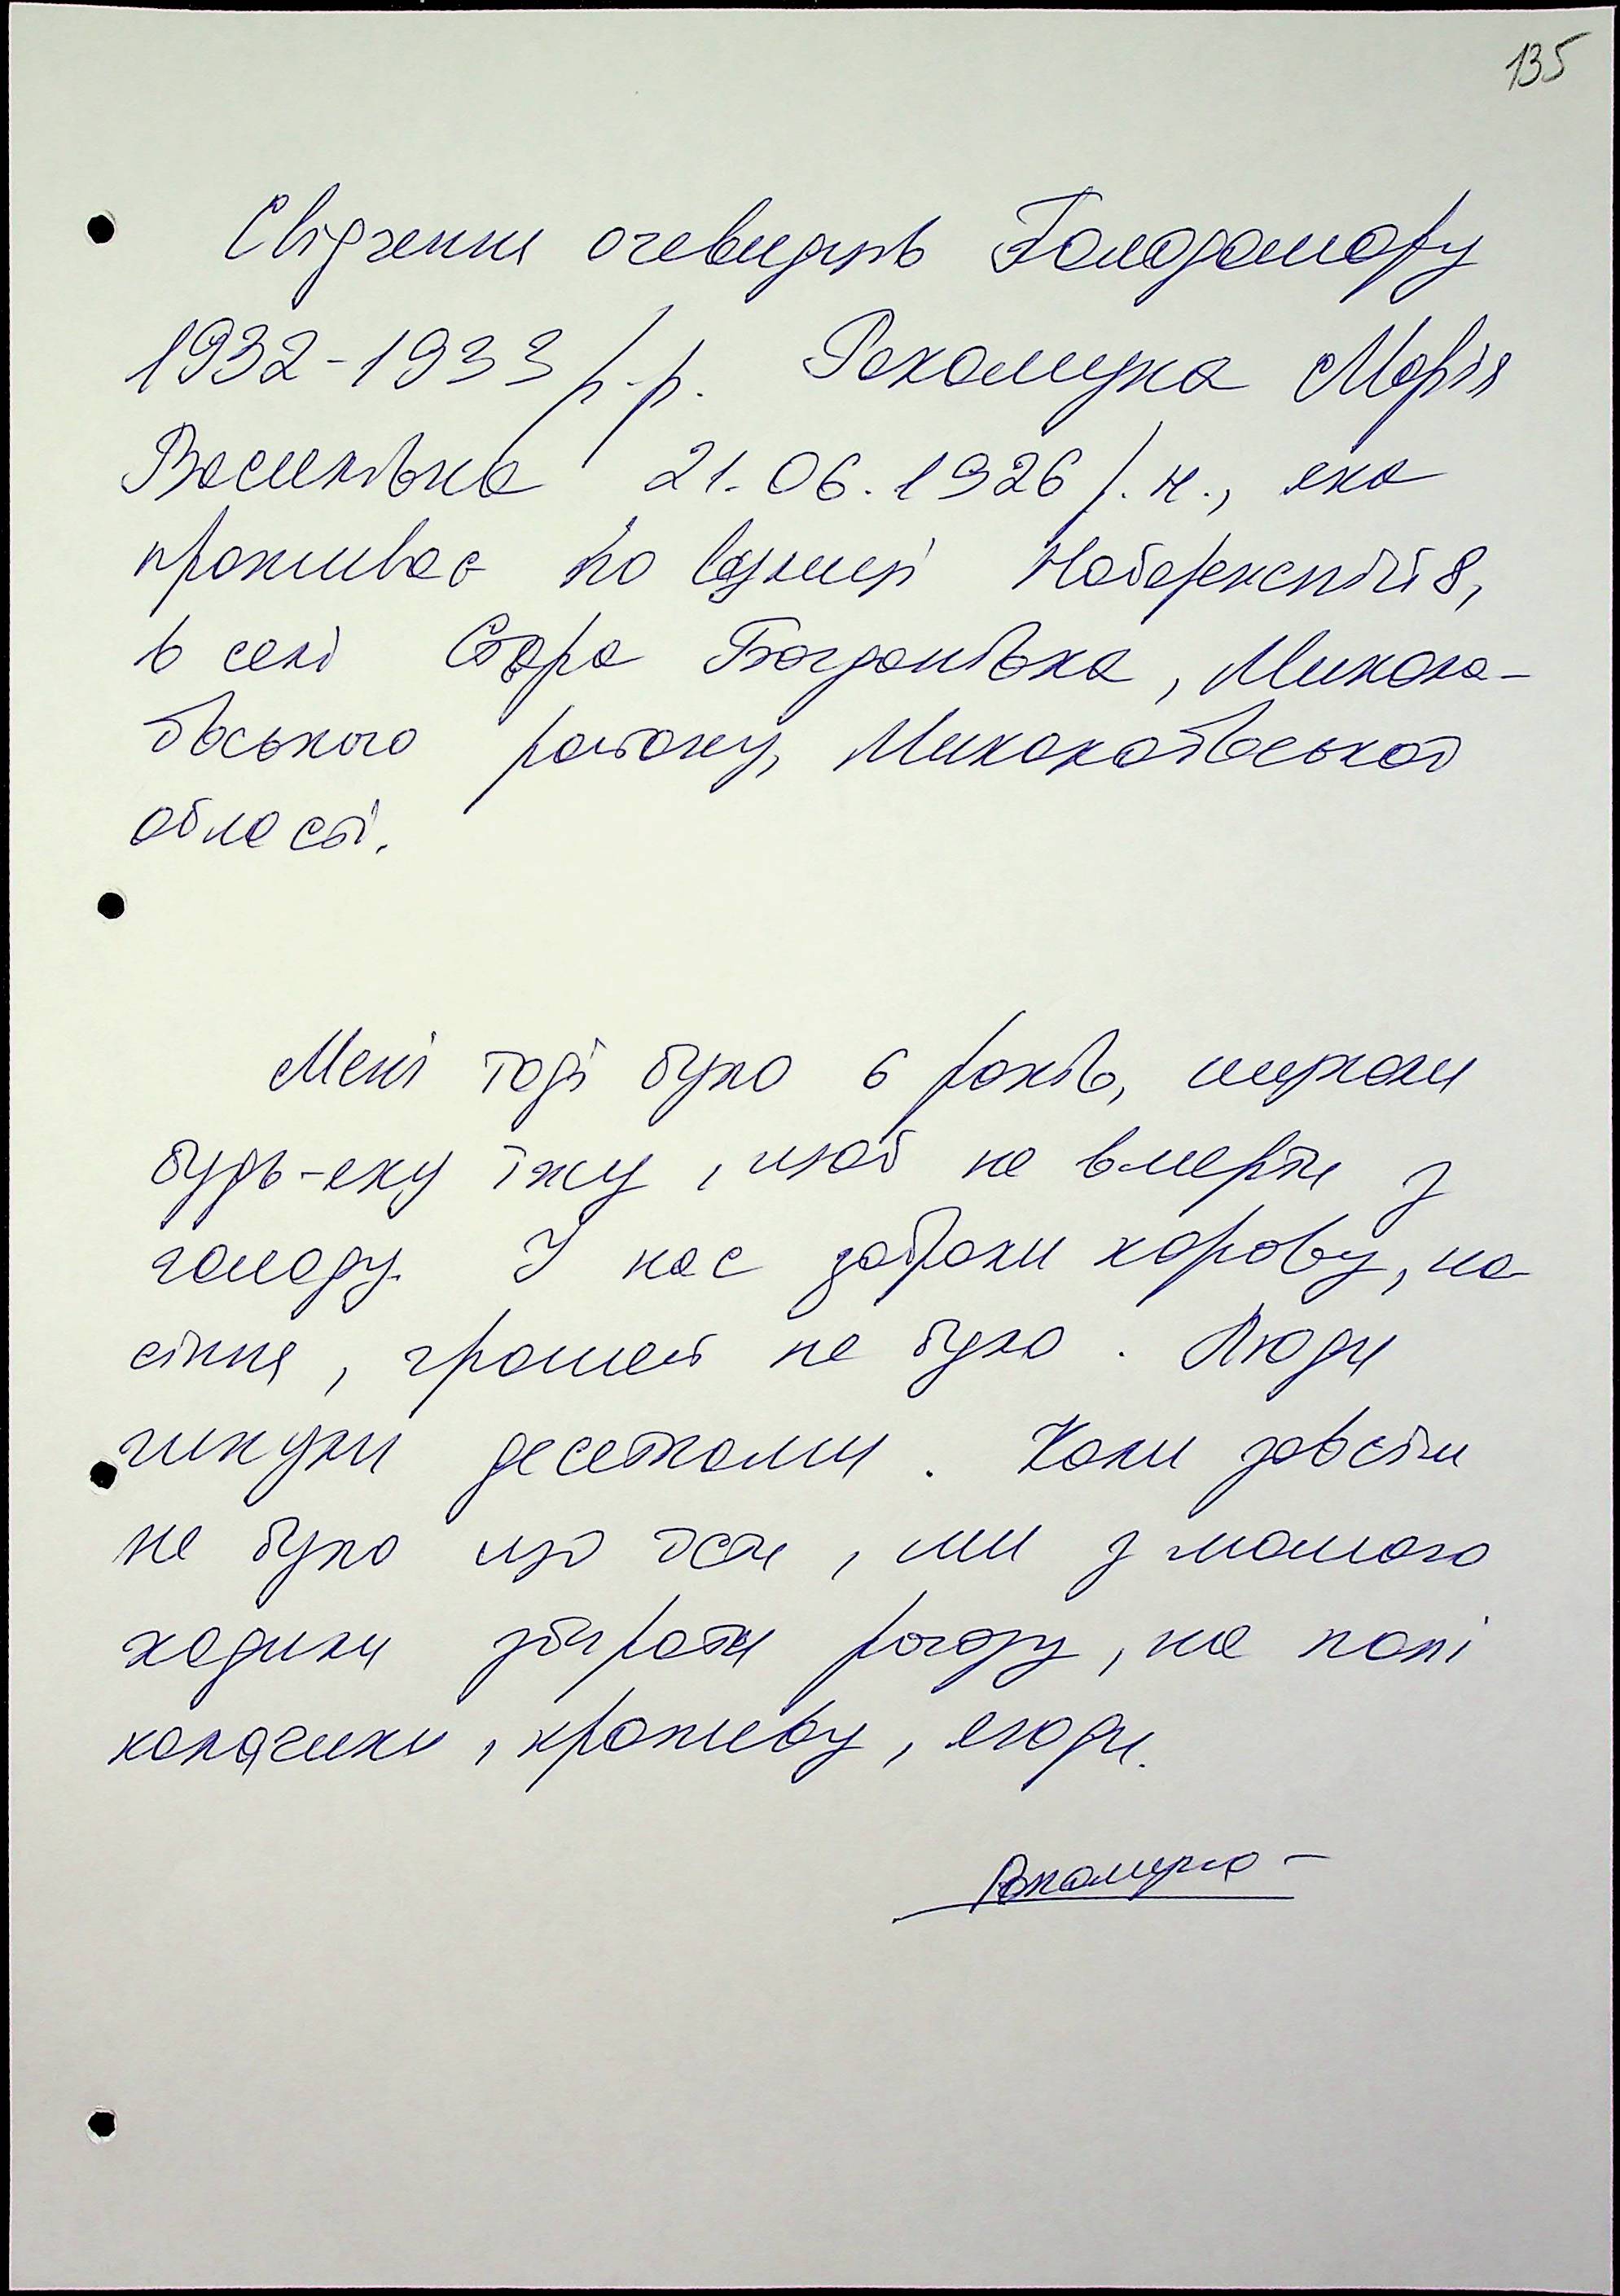 135
Свідчення очевидців Голодомору
1932-1933 р.р. Рекомецка Марія
Василівна 21.06.1926 р.н., яка
проживає по вулиці Набережній 8,
в селі Стара Богданівка, Микола-
ївського району, Миколаївської
області.
Мені тоді було 6 років, шукали
будь-яку їжу, щоб не вмерти з
голоду. У нас забрали корову, на
сіння, грошей не було. Люди
гинули десятками. Коли зовсім
не було що їсти, ми з мамою
ходили збирати рогозу, на полі
калачики, кропиву, ягоди.